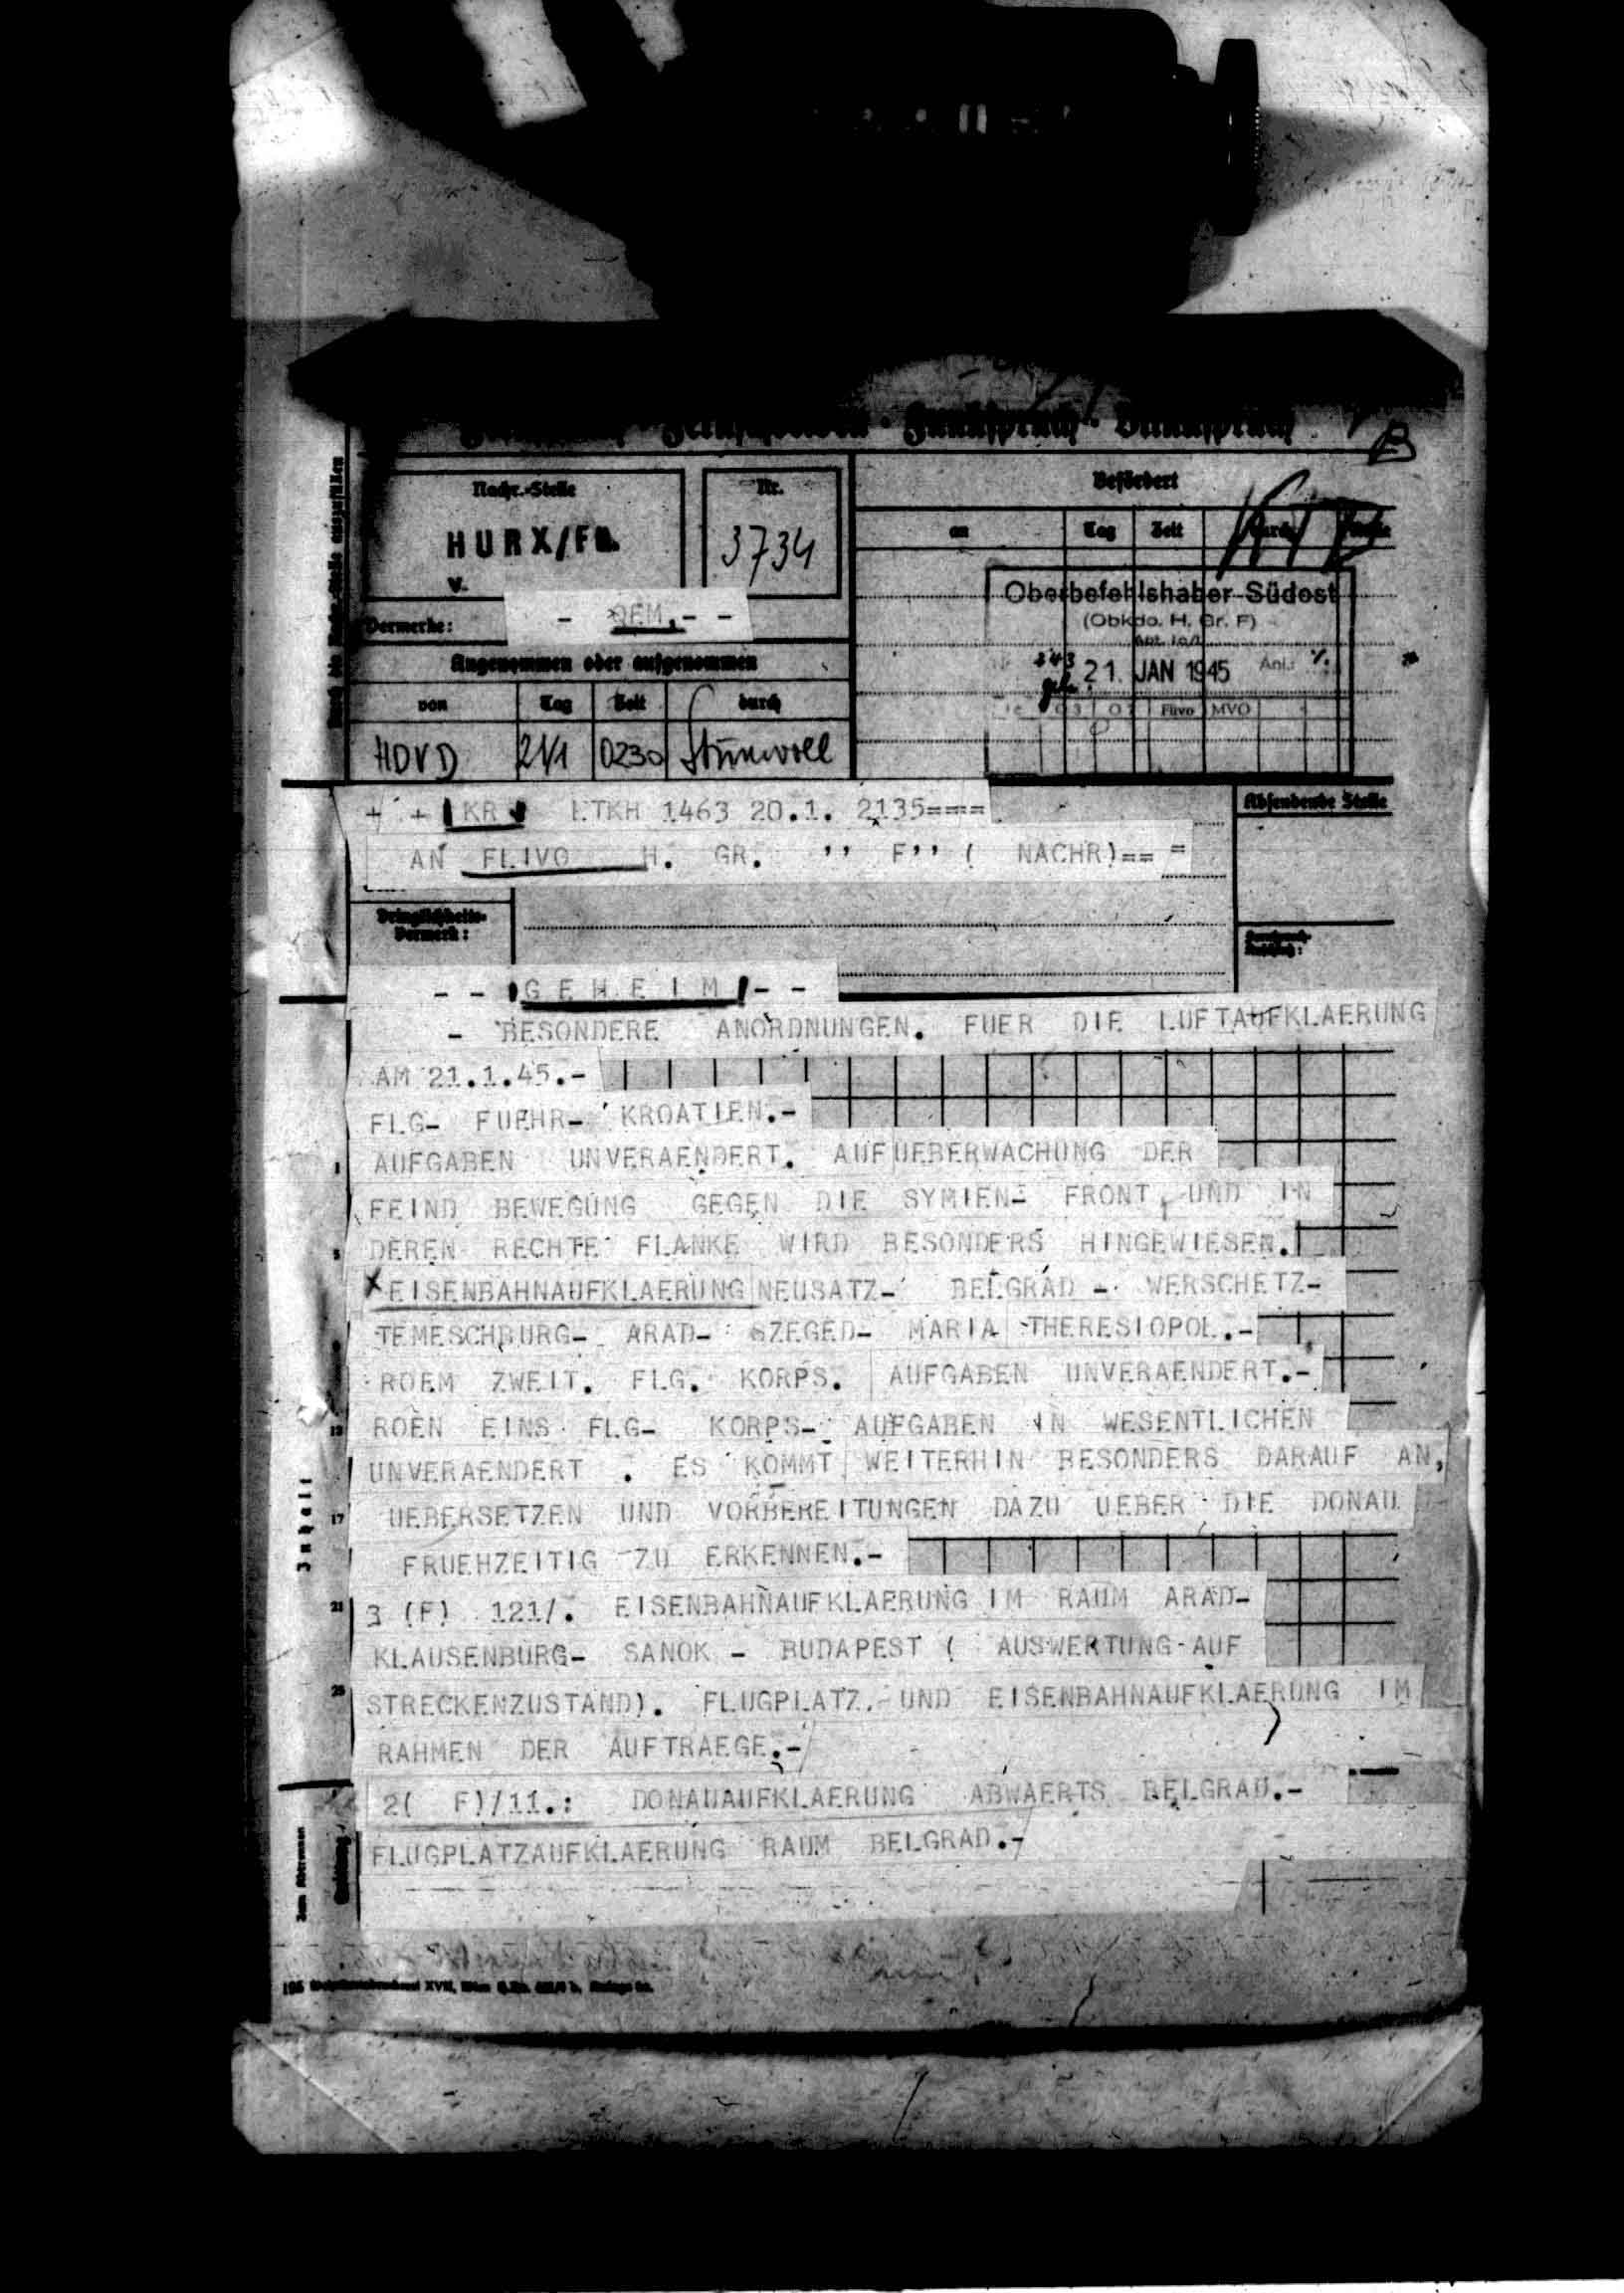 Funkspruch · Blinkspruch
B
Nachr.-Stelle
Nr.
Befördert
HURX/FU.
3734
an
Tag
Zeit
Vermerke:
Angenommen oder aufgenommen
von
Tag
Zeit
durch
HOVD
21/1
0230
Oberbefehlshaber Südost
(Obkdo. H. Gr. F)
21. JAN 1945 Anl.:
Flivo MVO
+ + KR LTKH 1463 20.1. 2135====
Absendende Stelle
AN FLIVO H. GR. '' F'' ( NACHR)== =
Dringlichkeits-
Vermerk:
- - G E H E I M - -
- BESONDERE ANORDNUNGEN. FUER DIE LUFTAUFKLAERUNG
AM 21.1.45.-
FLG- FUEHR- KROATIEN.-
AUFGABEN UNVERAENDERT. AUF UEBERWACHUNG DER
FEIND BEWEGUNG GEGEN DIE SYMIEN- FRONT, UND IN
DEREN RECHTE FLANKE WIRD BESONDERS HINGEWIESEN.
EISENBAHNAUFKLAERUNG NEUSATZ- BELGRAD -. WERSCHETZ-
TEMESCHBURG- ARAD- SZEGED- MARIA THERESIOPOL.-
ROEM ZWEIT. FLG. KORPS. AUFGABEN UNVERAENDERT.-
ROEN EINS FLG- KORPS- AUFGABEN IN WESENTLICHEN
UNVERAENDERT . ES KOMMT WEITERHIN BESONDERS DARAUF AN,
UEBERSETZEN UND VORBEREITUNGEN DAZU UEBER DIE DONAU
FRUEHZEITIG ZU ERKENNEN.-
3 (F) 121/. EISENBAHNAUFKLAERUNG IM RAUM ARAD-
KLAUSENBURG- SANOK - BUDAPEST ( AUSWERTUNG AUF
STRECKENZUSTAND). FLUGPLATZ.- UND EISENBAHNAUFKLAERUNG IM
RAHMEN DER AUFTRAEGE.-
2( F)/11.: DONAUAUFKLAERUNG ABWAERTS BELGRAD.-
FLUGPLATZAUFKLAERUNG RAUM BELGRAD.-
Inhalt
17
21
25